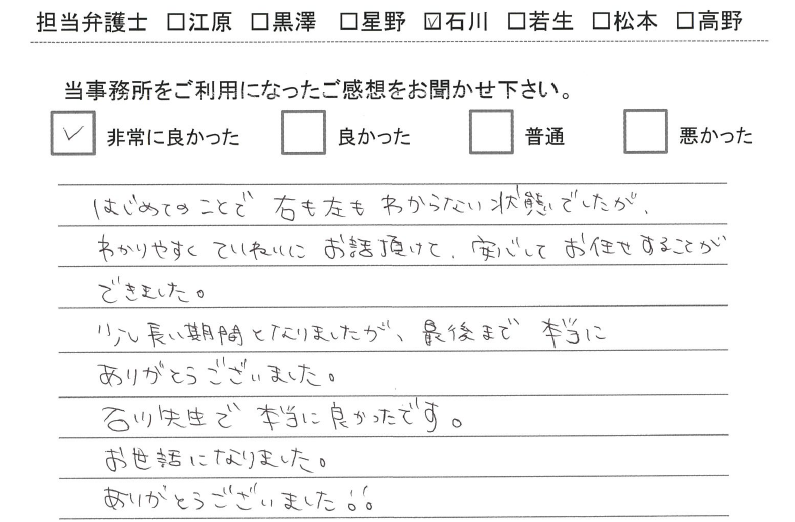 担当弁護士 □江原 □黒澤 □星野 ☑石川 □若生 □松本 □高野
当事務所をご利用になったご感想をお聞かせ下さい。
☑ 非常に良かった □ 良かった □ 普通 □ 悪かった
はじめてのことで 右も左も わからない 状態でしたが、
わかりやすく ていねいに お話頂けて、安心して お任せすることが
できました。
少し長い期間となりましたが、最後まで 本当に
ありがとうございました。
石川先生で 本当に良かったです。
お世話になりました。
ありがとうございました